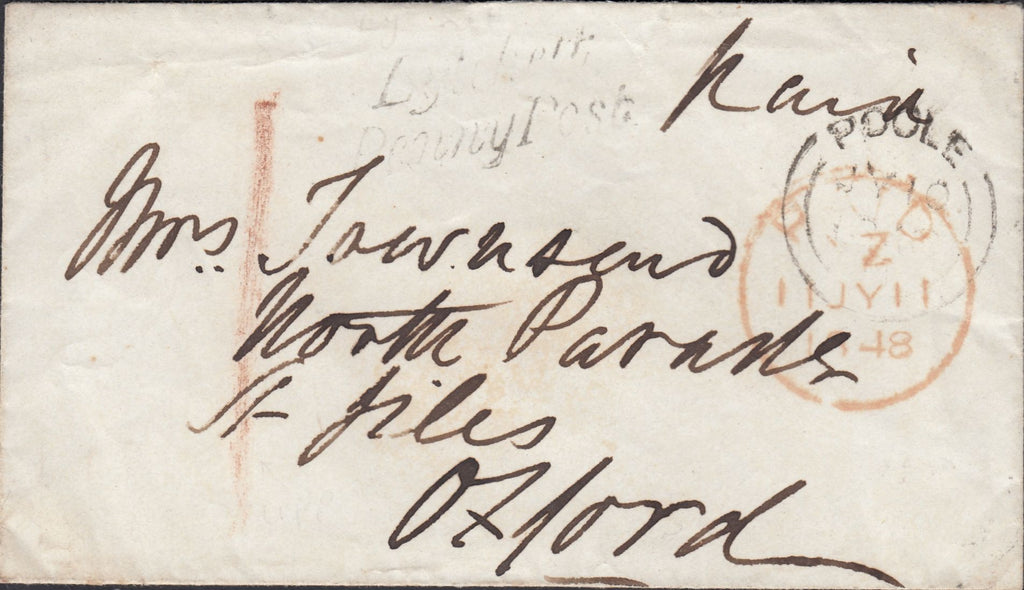 Penny Post
Paid
POOLE
JY 10
Mrs. Townsend
Z
11 JY 11
1848
North Parade
St Giles
Oxford